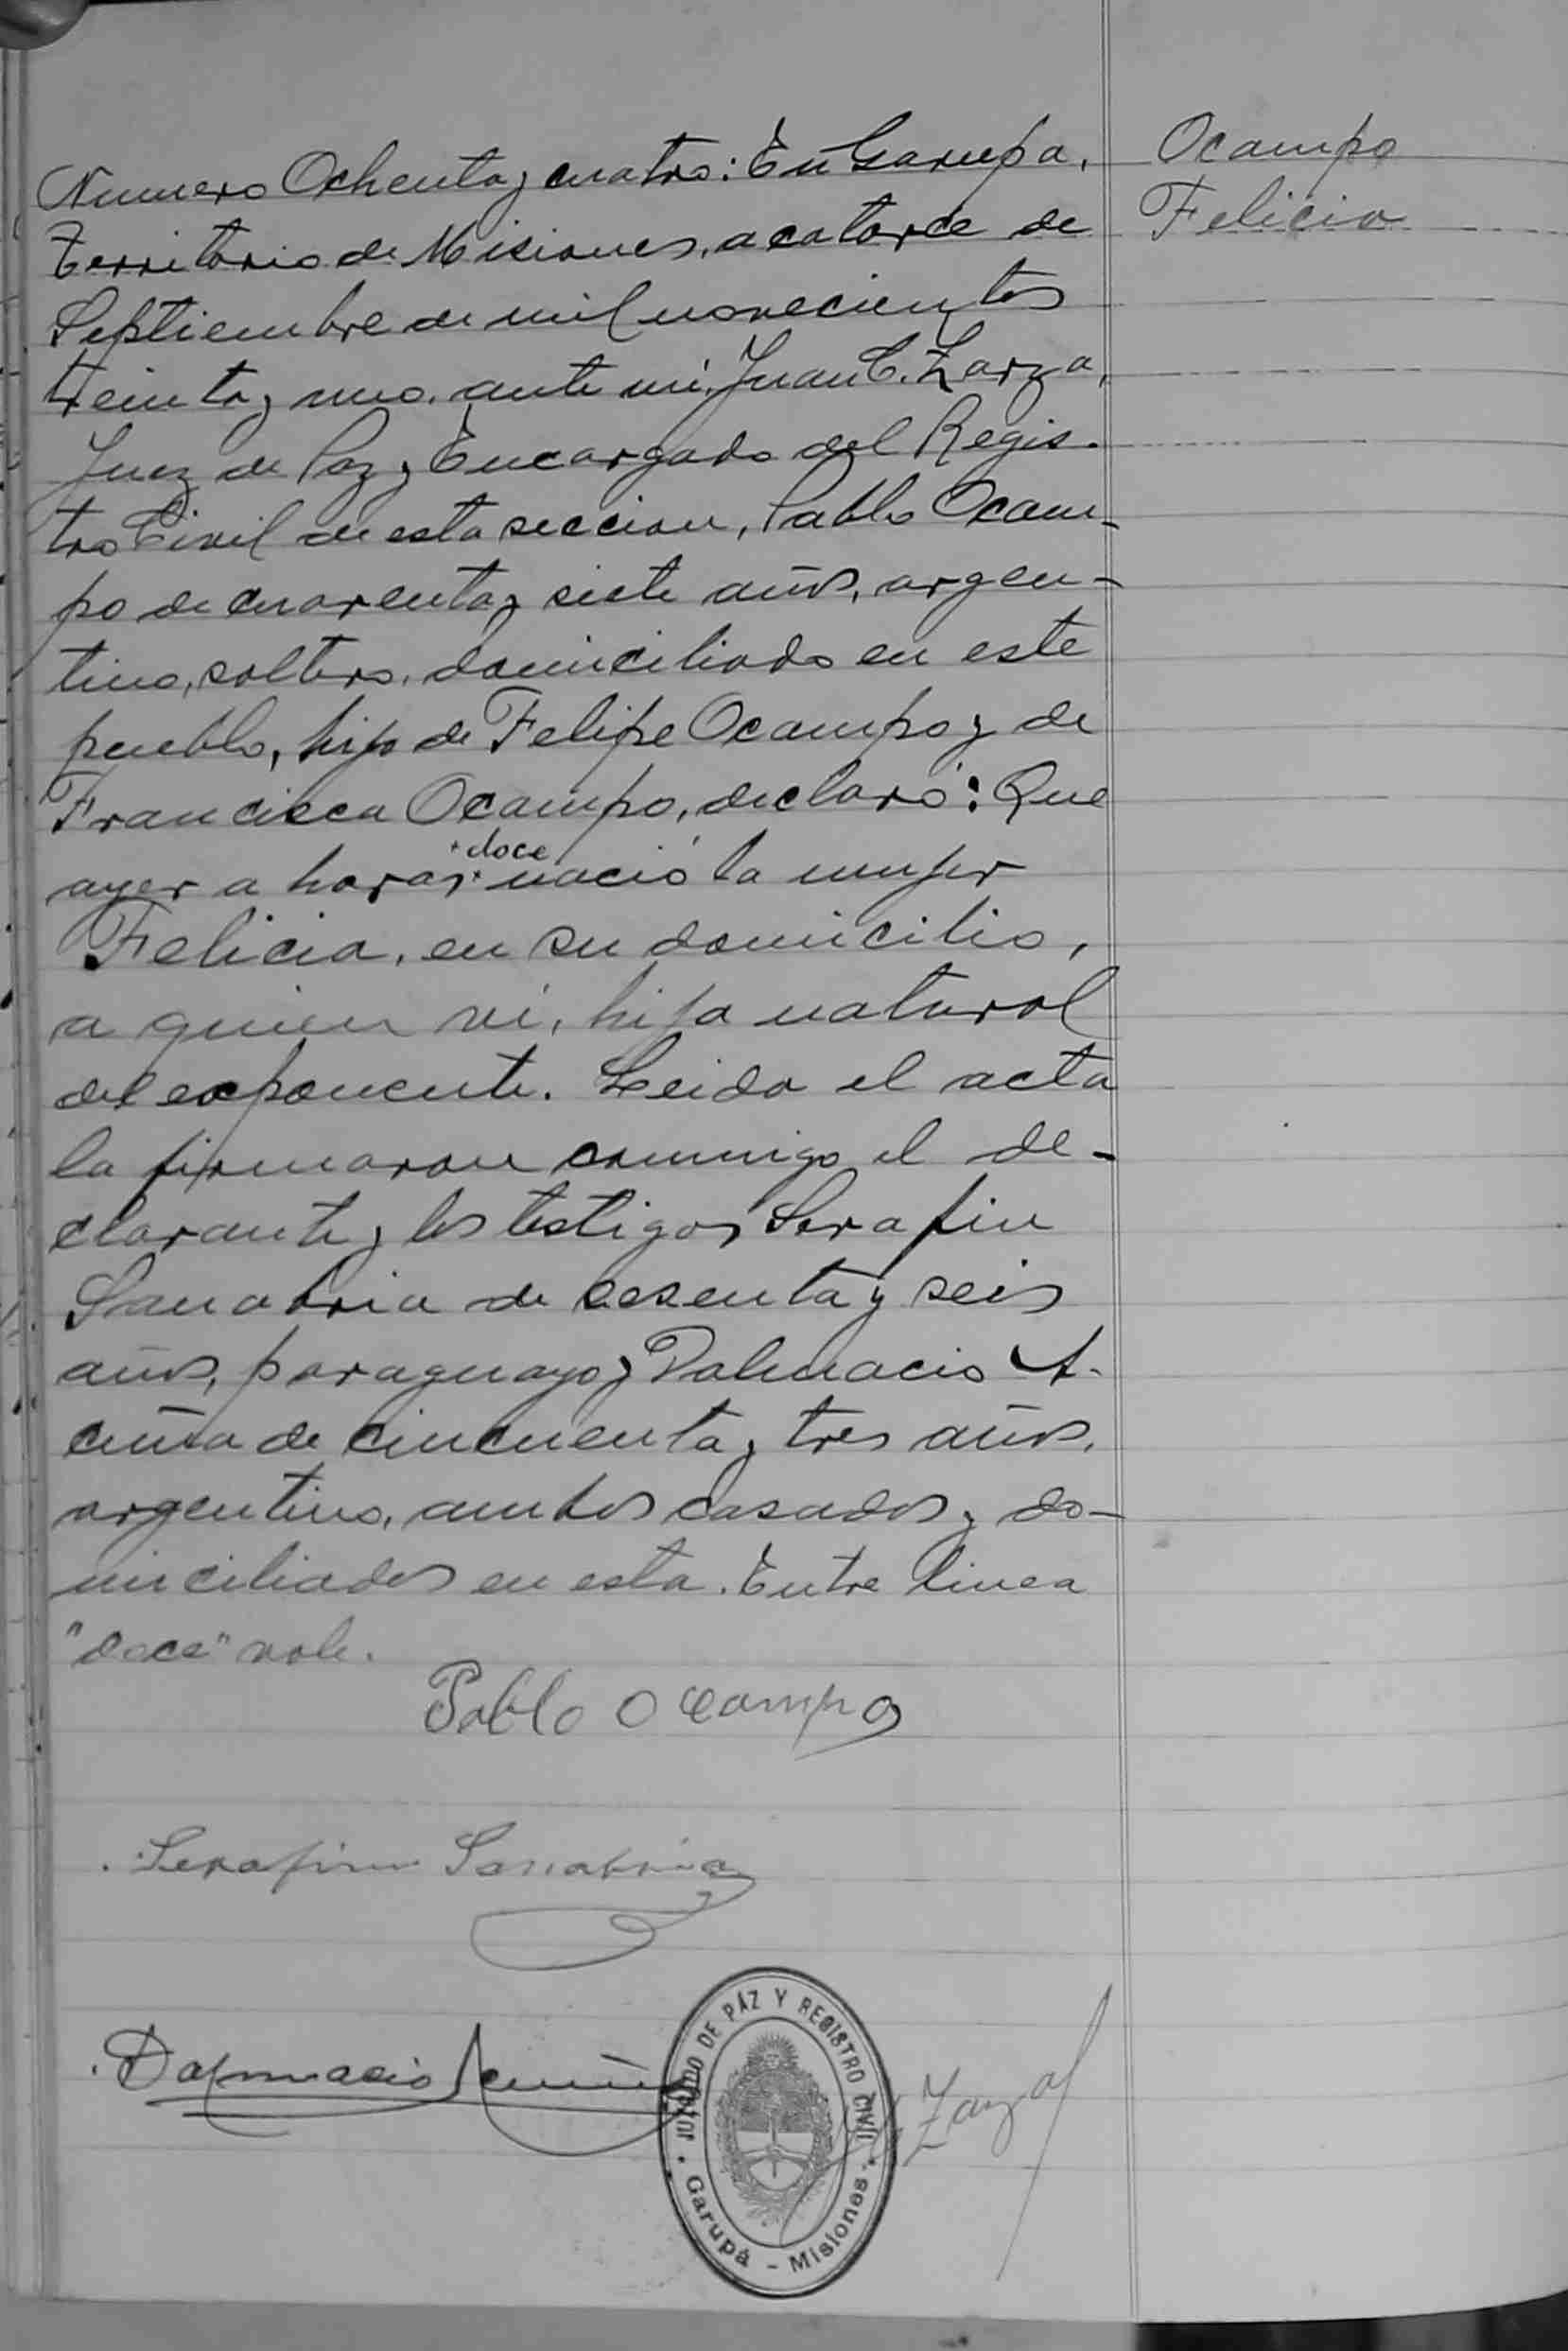 Ocampo
Felicia
Numero Ochenta y cuatro: En Garupa,
Territorio de Misiones, a catorce de
Septiembre de mil novecientos
treinta y uno, ante mi, Juan C. Zarza,
Juez de Paz y Encargado del Regis-
tro Civil de esta seccion, Pablo Ocam-
po de cuarenta y siete años, argen-
tino, soltero, domiciliado en este
pueblo, hijo de Felipe Ocampo y de
Francisca Ocampo, declaró: Que
doce
ayer a horas nació la mujer
Felicia, en su domicilio,
a quien vi, hija natural
del exponente. Leida el acta
la firmaron conmigo el de-
clarante y los testigos Serafin
Sanabria de sesenta y seis
años, paraguayo y Dalmacio A-
cuña de cincuenta y tres años,
argentino, ambos casados y do-
miciliados en esta. Entre linea
"doce" vale.
Pablo Ocampo
Serafin Sanabria
Dalmacio Acuña
JUZGADO DE PAZ Y REGISTRO CIVIL
Garupá - Misiones
Zarza